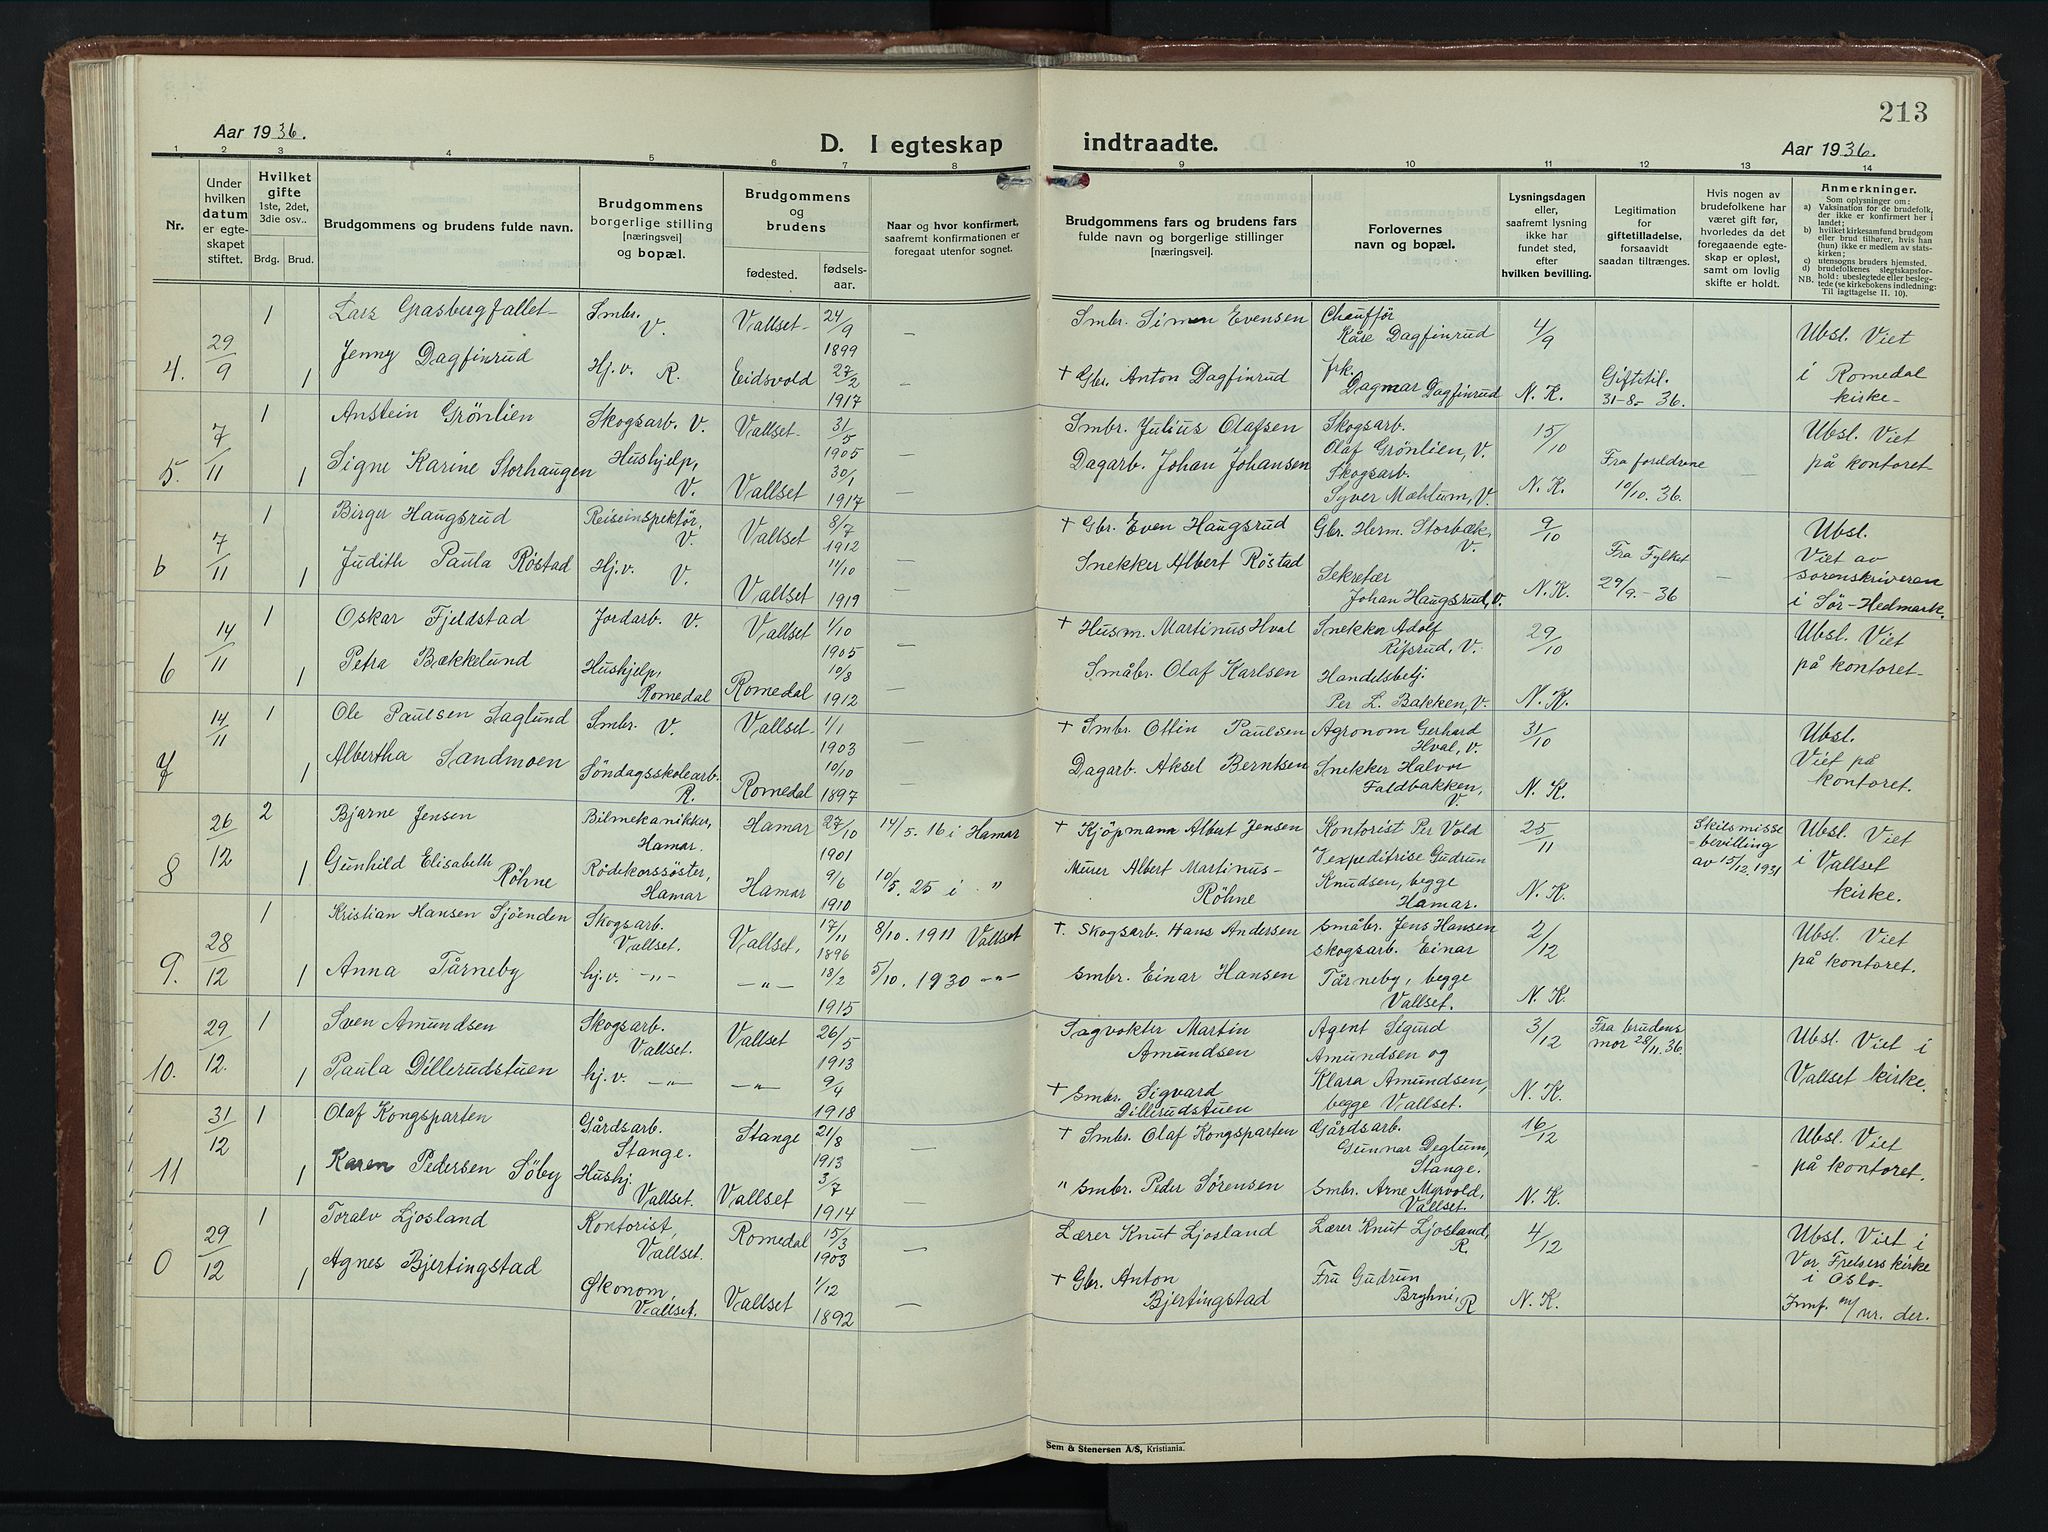 213
Aar 1936.
D. I egteskap
indtraadte.
Aar 1936.
1 2 3 4 5 6 7 8 9 10 11 12 13 14
Nr.
Under hvilken datum er egteskapet stiftet.
Hvilket gifte 1ste, 2det, 3die osv..
Brdg. Brud.
Brudgommens og brudens fulde navn.
Brudgommens borgerlige stilling [næringsvei] og bopæl.
Brudgommens og brudens
fødested. fødselsaar.
Naar og hvor konfirmert, saafremt konfirmationen er foregaat utenfor sognet.
Brudgommens fars og brudens fars fulde navn og borgerlige stillinger [næringsvei].
Forlovernes navn og bopæl.
Lysningsdagen eller, saafremt lysning ikke har fundet sted, efter hvilken bevilling.
Legitimation for giftetilladelse, forsaavidt saadan tiltrænges.
Hvis nogen av brudefolkene har været gift før, hvorledes da det foregaaende egteskap er opløst, samt om lovlig skifte er holdt.
Anmerkninger.
Som oplysninger om:
a) Vaksination for de brudefolk, der ikke er konfirmert her i landet;
b) hvilket kirkesamfund brudgom eller brud tilhører, hvis han (hun) ikke er medlem av statskirken;
c) utensogns bruders hjemsted.
d) brudefolkenes slegtskapsforhold: ubeslegtede eller beslegtede (se kirkebokens indledning:
NB. Til iagttagelse II. 10).
4. 29/9 1 Lars Grasbergfallet Smbr. V. Vallset 24/9 1899 — Smbr. Simen Evensen Chauffør Kåre Dagfinrud 4/9 Ubsl. Viet
1 Jenny Dagfinrud Hj. v. R. Eidsvold 27/2 1917 — + Gbr. Anton Dagfinrud frk. Dagmar Dagfinrud N. K. Giftetil. 31-8-36. i Romedal kirke
5. 7/11 1 Anstein Grönlien Skogsarb. V. Vallset 31/5 1905 Smbr. Julius Olafsen Skogsarb. Olaf Grönlien, V. 15/10 Ubsl. Viet
1 Signe Karine Storhaugen Hushjelp, V. Vallset 30/1 1917 — Dagarb. Johan Johansen Skogsarb. Syver Mæhlum, V. N. K. Fra foreldrene 10/10. 36. — på kontoret
6 7/11 1 Birger Haugsrud Reiseinspektör, V. Vallset 8/7 1912 — + Gbr. Even Haugsrud Gbr. Herm. Storbæk, V. 9/10 Ubsl.
1 Judith Paula Röstad Hj. v. V. Vallset 11/10 1919 — Snekker Albert Röstad Sekretær Johan Haugsrud, V. N. K. Fra Fylket 29/9.-36 — Viet av sorenskriveren i Sör-Hedmark.
6 14/11 1 Oskar Fjeldstad Jordarb. V. Vallset 1/10 1905 — + Husm. Martinus Hval Snekker Adolf Rifsrud, V. 29/10 Ubsl. Viet
1 Petra Bækkelund Hushjelp, Romedal Romedal 10/8 1912 — Småbr. Olaf Karlsen Handelsbetj. Per L. Bakken, V. N. K. på kontoret
7 14/11 1 Ole Paulsen Saglund Smbr. V. Vallset 1/1 1903 — + Smbr. Ottin Paulsen Agronom Gerhard Hval, V. 31/10 Ubsl.
1 Albertha Sandmoen Söndagsskolearb. R. Romedal 10/10 1897 — Dagarb. Aksel Berntsen Snekker Halvor Faldbakken, V. N. K. Viet på kontoret.
8 26/12 2 Bjarne Jensen Bilmekanikker, Hamar. Hamar 27/10 1901 14/5. 16 i Hamar + Kjöpmann Albert Jensen Kontorist Per Vold 25/11 Skilsmissebevilling av 15/12. 1931 Ubsl. Viet
1 Gunhild Elisabeth Röhne Rödekorssöster, Hamar Hamar 9/6 1910 10/5. 25 i " Murer Albert Martinus Röhne Vexpeditrise Gudrun Knudsen, begge Hamar. N. K. i Vallset kirke.
9. 28/12 1 Kristian Hansen Sjöenden Skogsarb. Vallset. Vallset, 17/11 1896 8/10. 1911 Vallset +. Skogsarb. Hans Andersen småbr. Jens Hansen 2/12 Ubsl. Viet
1 Anna Tårneby hj. v. —"— —"— 18/2 1915 5/10. 1930 —"— smbr. Einar Hansen skogsarb. Einar Tårneby, begge Vallset. N. K. på kontoret.
10. 29/12. 1 Sven Amundsen Skogsarb. Vallset. Vallset 26/5 1913 Sagvokter Martin Amundsen Agent Sigurd Amundsen og 3/12 Fra brudens mor 28/11. 36. Ubsl. Viet i
1 Paula Dillerudstuen hj. v. —"— —"— 9/4 1918 + smbr. Sigvard Dillerudstuen Klara Amundsen, begge Vallset. N. K. Vallset kirke.
11 31/12 1 Olaf Kongsparten Gårdsarb. Stange. Stange 21/8 1913 — + Smbr. Olaf Kongsparten Gårdsarb. Gunnar Deglum, Stange. 16/12 Ubsl. Viet
1 Karen Pedersen Söby Hushj. Vallset. Vallset 3/7 1914 — " smbr. Peder Sörensen smbr. Arne Myrvold, Vallset. N. K. på kontoret.
0 29/12 1 Toralv Ljosland Kontorist, Vallset. Romedal 15/3 1903 — Lærer Knut Ljosland Lærer Knut Ljosland, R. 4/12 Ubsl. Viet i
1 Agnes Bjertingstad Økonom, Vallset. Vallset 1/12 1892 — + Gbr. Anton Bjertingstad Fru Gudrun Bryhni, R N. K. Vor Frelsers kirke i Oslo. Innf. m/ nr. der.
Sem & Stenersen A/S, Kristiania.